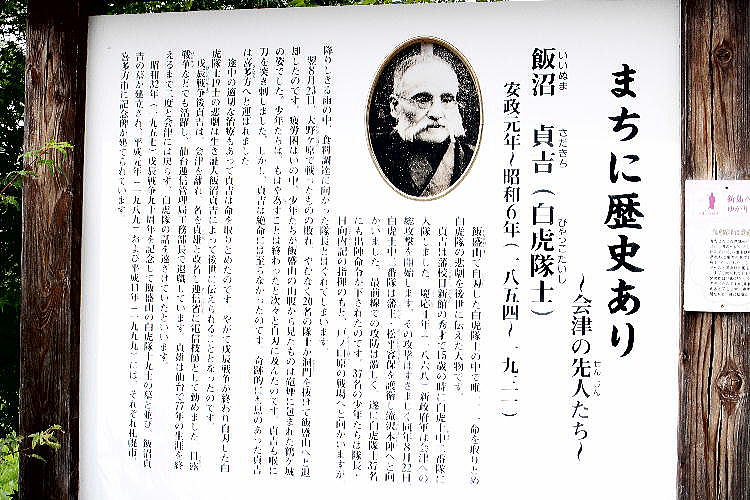 まちに歴史あり
～会津の先人たち～
せんじん
飯沼 貞吉（白虎隊士）
いいぬま さだきち びゃっこたいし
安政元年～昭和6年（一八五四～一九三一）
飯盛山で自刃した白虎隊士の中で唯一、一命を取りとめ
白虎隊の悲劇を後世に伝えた人物です。
貞吉は藩校日新館の秀才で15歳の時に白虎士中二番隊に
入隊しました。慶応4年（一八六八）新政府軍は会津への
総攻撃を開始します。その攻撃はすさまじく同年8月22日
白虎士中二番隊は藩主・松平容保を護衛し滝沢本陣へと向
かいました。最前線での攻防は激しく、遂に白虎隊士37名
にも出陣命令が下されたのです。37名の少年たちは隊長・
日向内記の指揮のもと、戸ノ口原の戦場へと向かいますが
降りしきる雨の中、食料調達に向かった隊長とはぐれてしまいます。
翌8月23日、大野ヶ原で戦ったものの敗れ、やむなく20名の隊士が洞門を抜けて飯盛山へと退
却したのです。疲労困ぱいの中、少年たちが飯盛山の山腹から見たものは砲煙に包まれた鶴ヶ城
の姿でした。少年たちは、もはや為すことは終わったと次々と自刃に及んだのです。貞吉も喉に
刀を突き刺しました。しかし、貞吉は絶命には至らなかったのです。奇跡的に生気のあった貞吉
は喜多方へと運ばれました。
途中の適切な治療もあって貞吉は命を取りとめたのです。やがて戊辰戦争が終わり自刃した白
虎隊士19士の悲劇は生き証人飯沼貞吉によって後世に伝えられることとなったのです。
戊辰戦争後貞吉は、会津を離れ、名を貞雄と改名し逓信省に電信技師として勤めました。日露
戦争などでも活躍し、仙台逓信管理局工務部長で退職しています。貞雄は仙台で77年の生涯を終
えるまで二度と会津には戻らず、白虎隊の話も遠ざけていたといいます。
昭和32年（一九五七）戊辰戦争九十周年を記念して飯盛山の白虎隊十九士の墓と並び、飯沼貞
吉の墓が建立され、平成元年（一九八九）および平成11年（一九九九）には、それぞれ札幌市、
喜多方市に記念碑が建てられています。